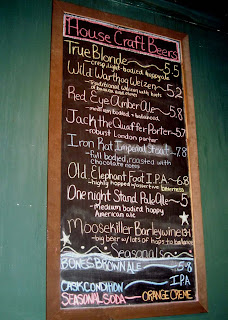 House Craft Beers
True Blonde 5.5
crisp, light-bodied hoppy ale
Wild Warthog Weizen 5.2
traditional weizen with hints
of banana and clover
Red Eye Amber Ale 5.8
medium bodied + balanced
Jack the Quaffer Porter 5.7
robust London porter
Iron Rat Imperial Stout 7.8
full bodied, roasted with
chocolate notes
Old Elephant Foot I.P.A. 6.8
highly hopped + assertive bitterness
One night Stand Pale Ale 5
Medium bodied hoppy
American ale
Moosekiller Barleywine 13.1
big beer w/ lots of hops to balance
Seasonals
Bones Brown Ale 5.8
Cask Condition I.P.A
Seasonal Soda Orange Creme